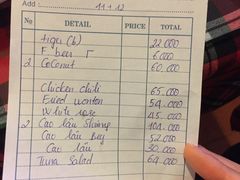 Add : 11 + 12
No DETAIL PRICE TOTAL
Tiger (b) 22.000
F beer 6.000
2. Coconut 60.000
Chicken chili 65.000
Fried wonton 54.000
White rose 45.000
2 Cao lầu 104.000
Cao lầu 52.000
Cao lầu 30.000
Tuna Salad 64.000